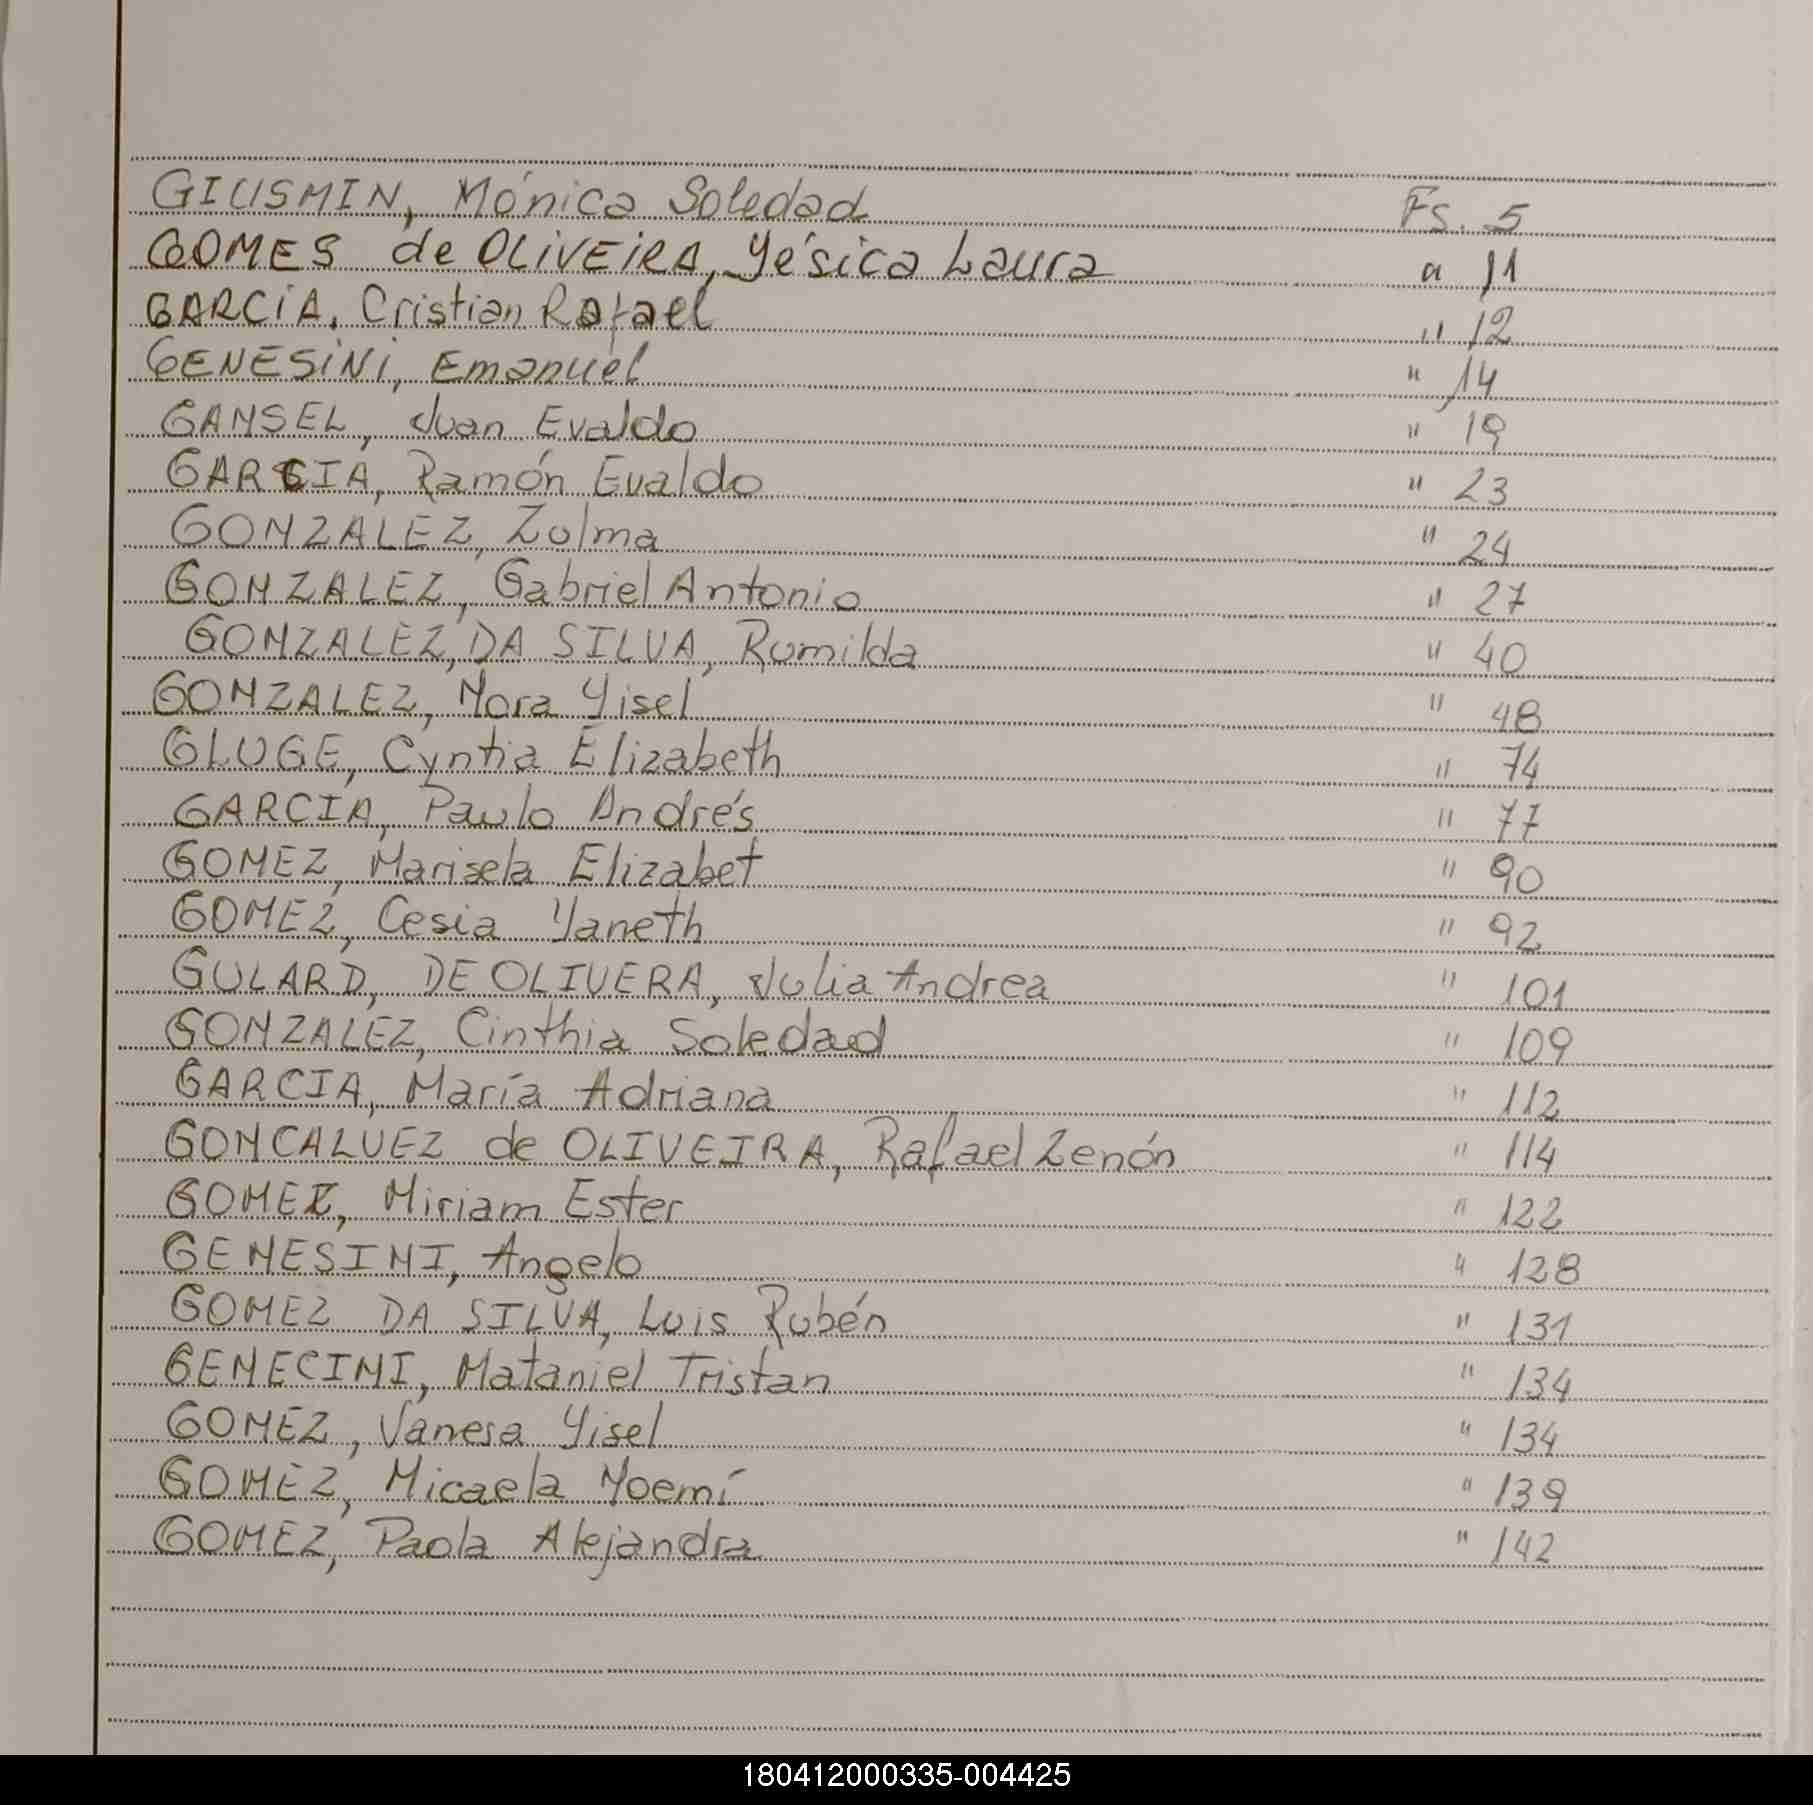 GIUSMIN, Mónica Soledad Fs. 5
GOMES de OLIVEIRA, Yésica Laura " 11
GARCÍA, Cristian Rafael " 12
GENESINI, Emanuel " 14
GANSEL, Juan Evaldo " 19
GARCIA, Ramón Evaldo " 23
GONZALEZ, Zulma " 24
GONZALEZ, Gabriel Antonio " 27
GONZALEZ, DA SILVA, Romilda " 40
GONZALEZ, Nora Yisel " 48
GLUGE, Cyntia Elizabeth " 74
GARCIA, Paulo Andrés " 77
GOMEZ, Marisela Elizabet " 90
GOMEZ, Cesia Yaneth " 92
GULARD, DE OLIVERA, Julia Andrea " 101
GONZALEZ, Cinthia Soledad " 109
GARCIA, María Adriana " 112
GONCALVEZ de OLIVEIRA, Rafael Zenón " 114
GOMEZ, Miriam Ester " 122
GENESINI, Angelo " 128
GOMEZ DA SILVA, Luis Rubén " 131
GENECINI, Nataniel Tristan " 134
GOMEZ, Vanesa Yisel " 134
GOMEZ, Micaela Noemí " 139
GOMEZ, Paola Alejandra " 142
180412000335-004425